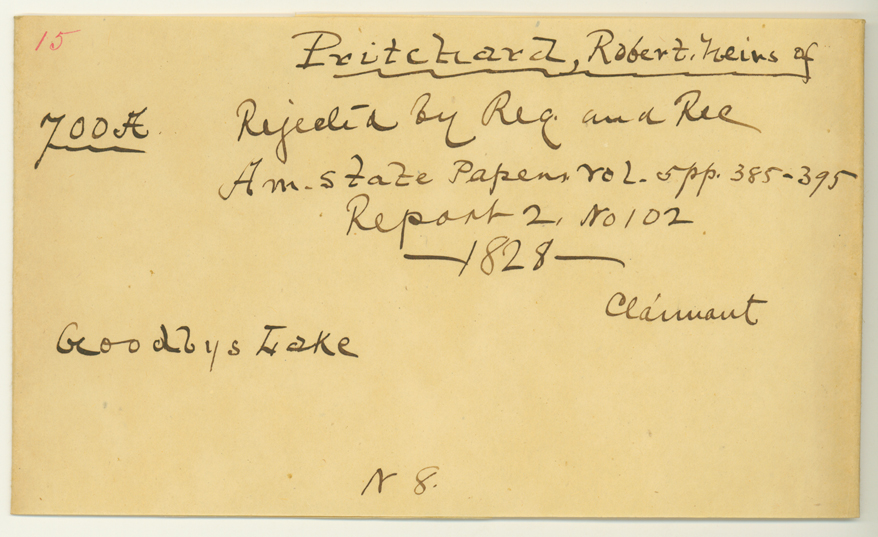 15
Pritchard, Robert. heirs of
700 A. Rejected by Reg. and Rec
Am. State Papers. vol. 5 pp. 385-395
Report 2, No 102
—1828—
Claimant
Goodbys Lake
N 8.